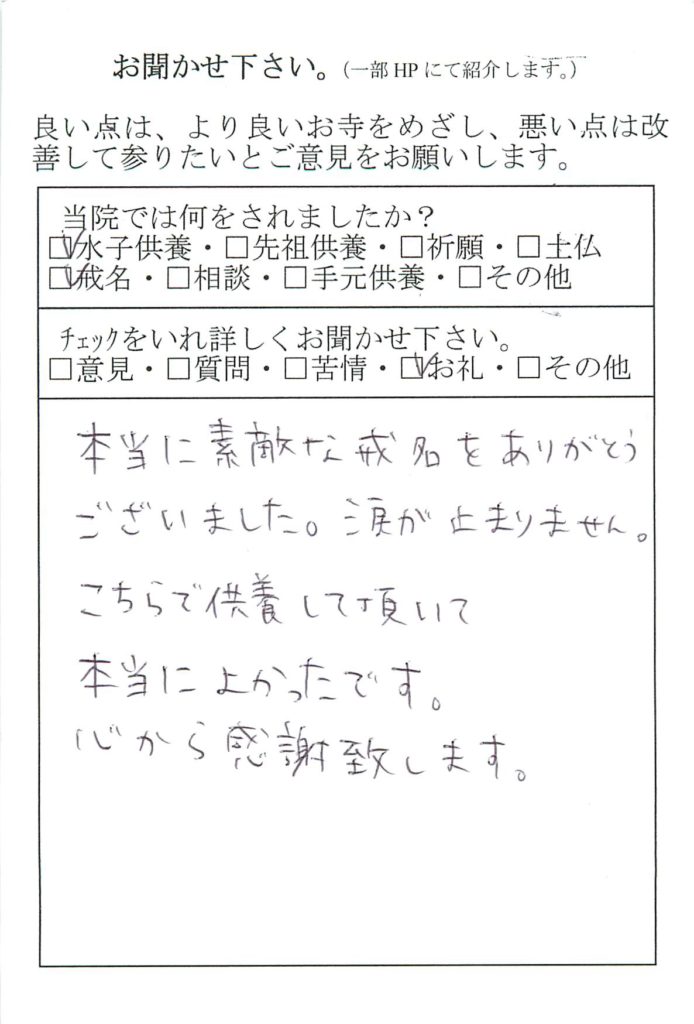 お聞かせ下さい。(一部HPにて紹介します。)
良い点は、より良いお寺をめざし、悪い点は改
善して参りたいとご意見をお願いします。
当院では何をされましたか?
☑水子供養・□先祖供養・□祈願・□土仏
☑戒名・□相談・□手元供養・□その他
チェックをいれ詳しくお聞かせ下さい。
□意見・□質問・□苦情・☑お礼・□その他
本当に素敵な戒名をありがとう
ございました。涙が止まりません。
こちらで供養して頂いて
本当によかったです。
心から感謝致します。